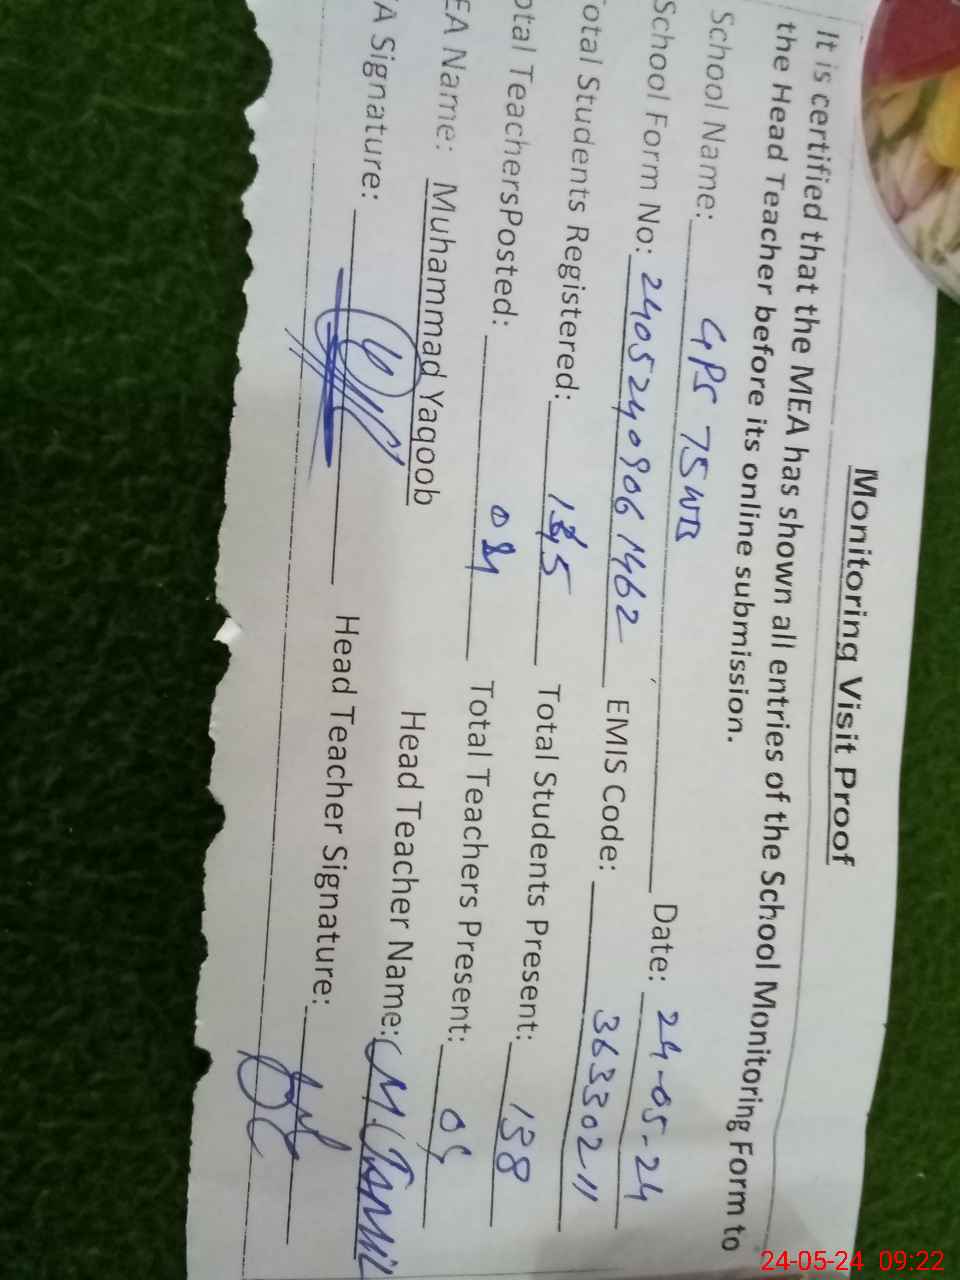 Monitoring Visit Proof
It is certified that the MEA has shown all entries of the School Monitoring Form to
the Head Teacher before its online submission.
School Name: GPS 75WB Date: 24-05-24
School Form No: 24052409061462 EMIS Code: 36330211
otal Students Registered: 145 Total Students Present: 138
otal TeachersPosted: 04 Total Teachers Present: 04
EA Name: Muhammad Yaqoob Head Teacher Name: M. Jamil
A Signature: Head Teacher Signature:
24-05-24 09:22